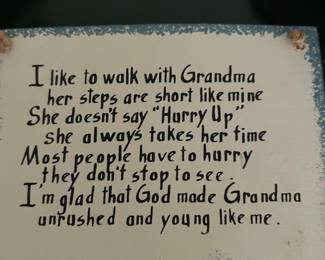 I like to walk with Grandma
her steps are short like mine
She doesn't say "Hurry Up"
she always takes her time
Most people have to hurry
they don't stop to see.
I'm glad that God made Grandma
unrushed and young like me.